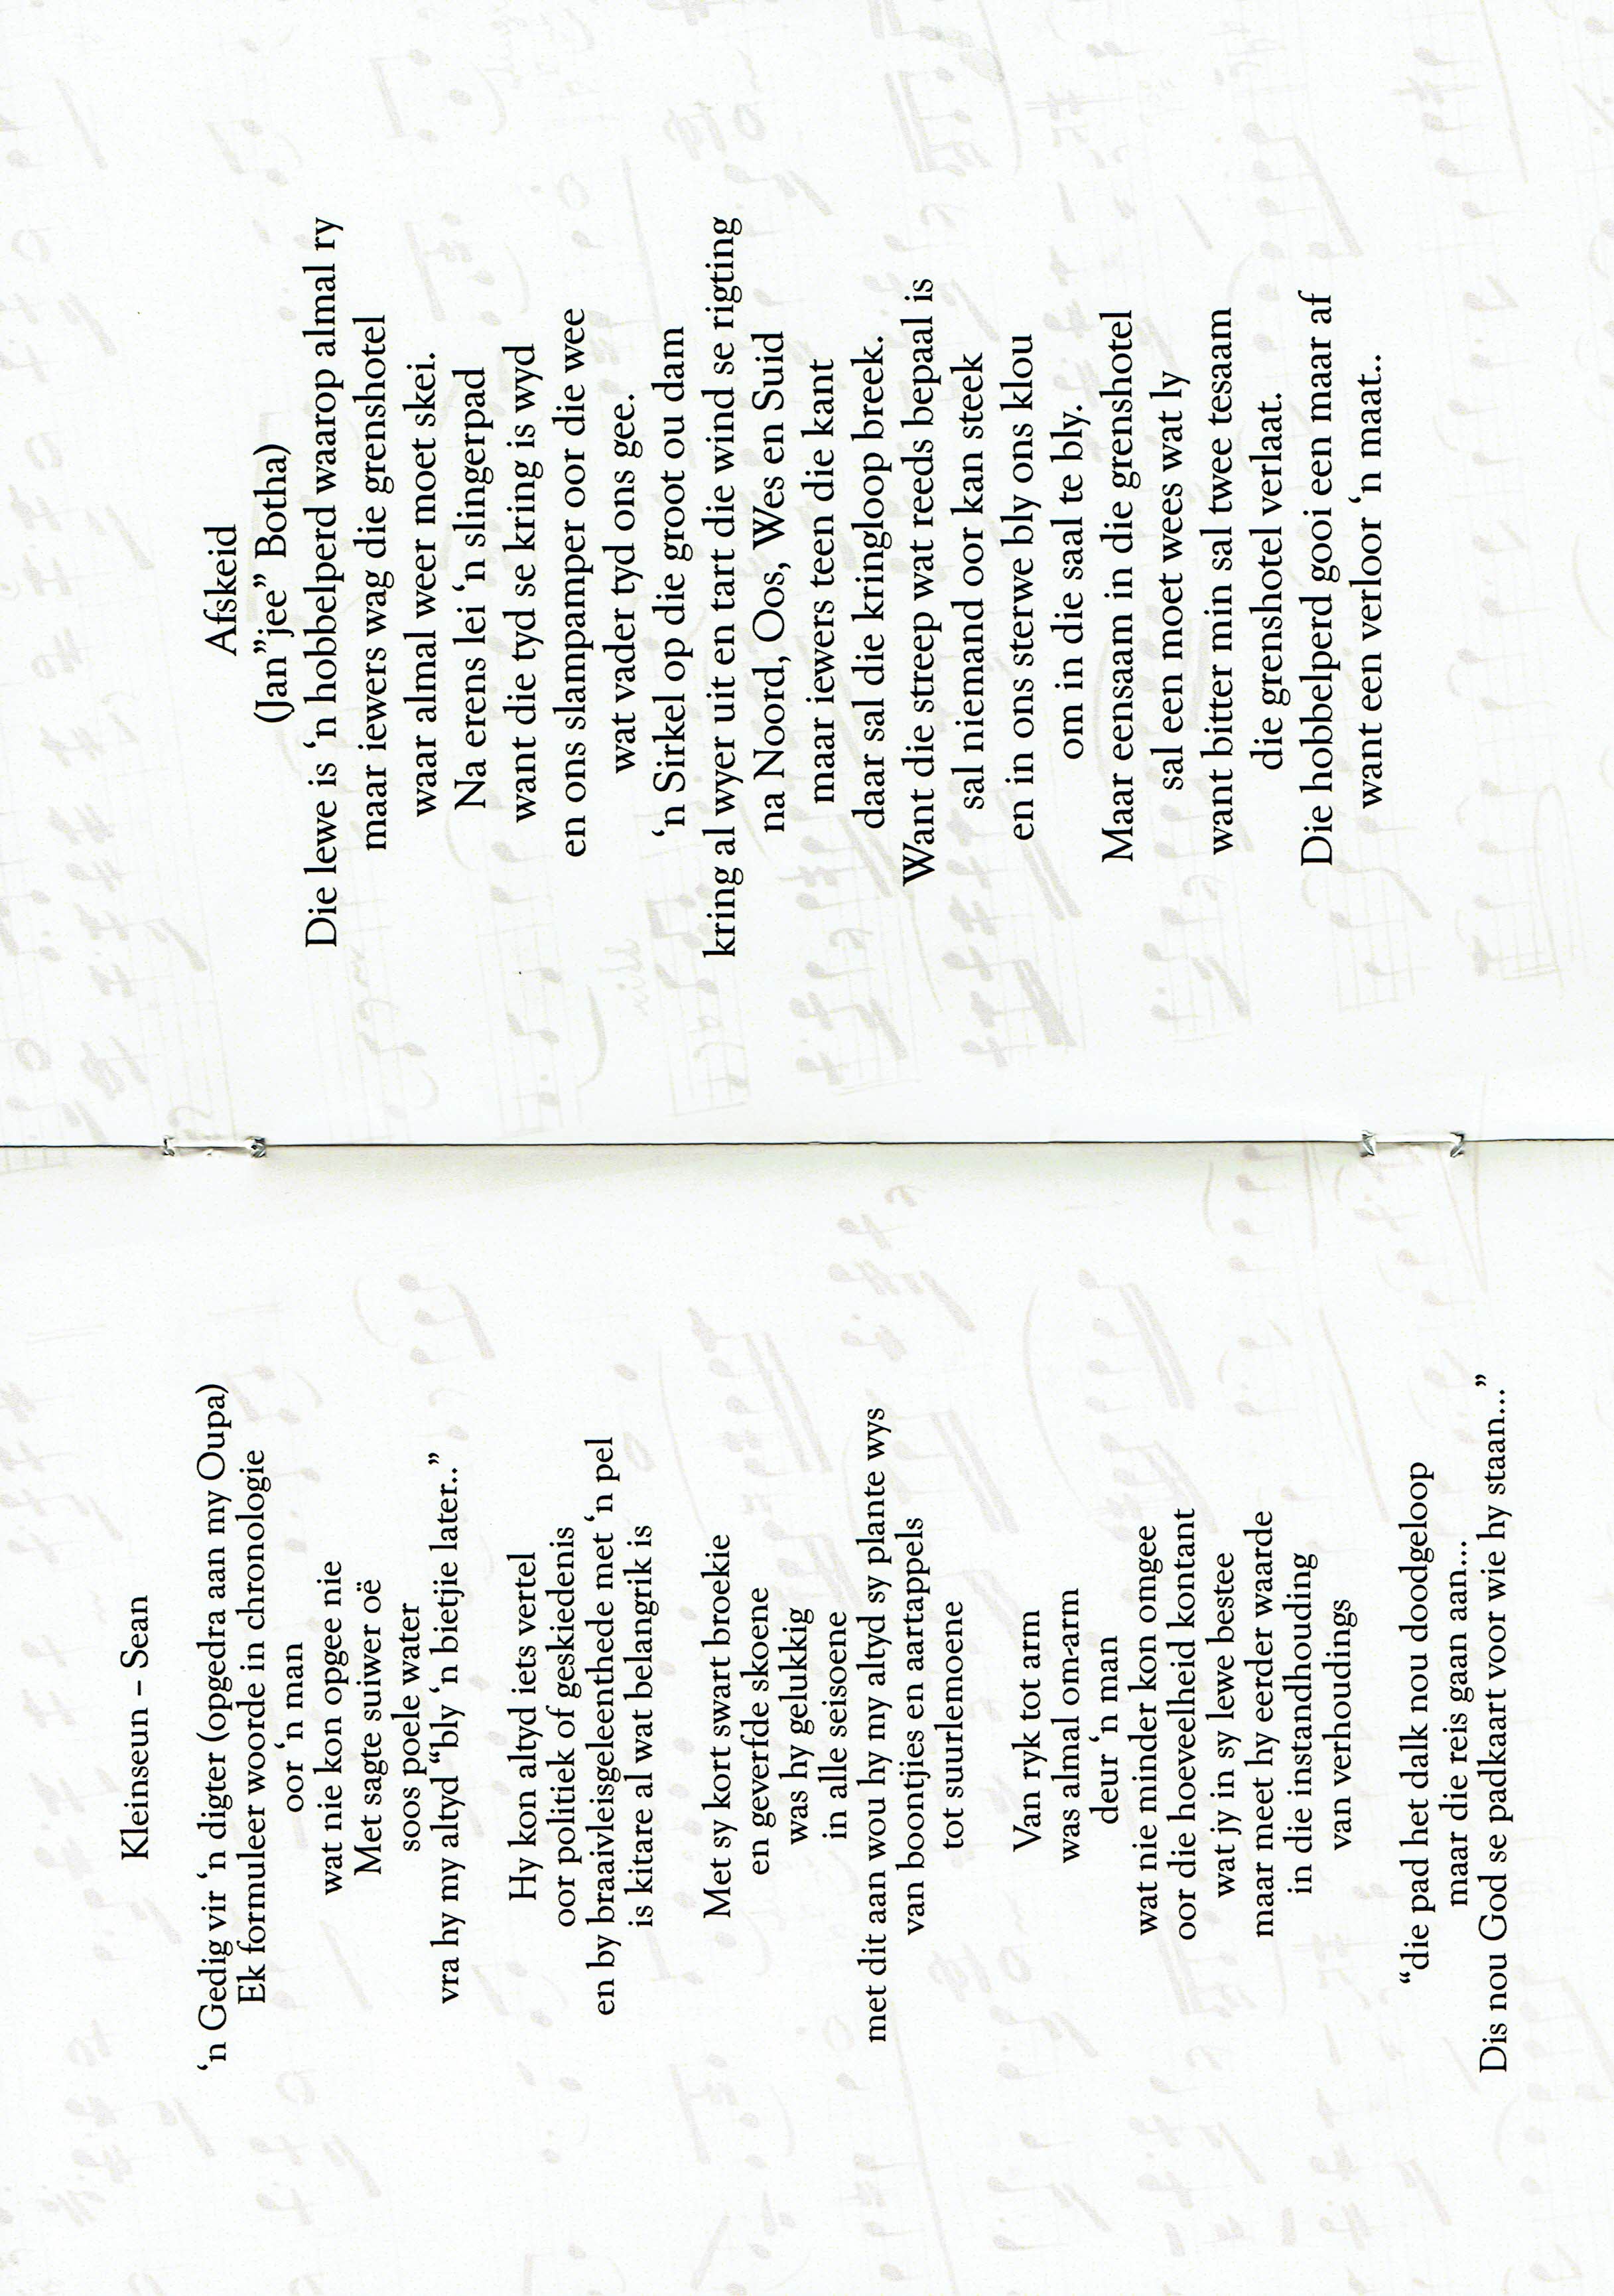 Kleinseun – Sean
‘n Gedig vir ‘n digter (opgedra aan my Oupa)
Ek formuleer woorde in chronologie
oor ‘n man
wat nie kon opgee nie
Met sagte suiwer oë
soos poele water
vra hy my altyd “bly ‘n bietjie later..”
Hy kon altyd iets vertel
oor politiek of geskiedenis
en by braaivleisgeleenthede met ‘n pel
is kitare al wat belangrik is
Met sy kort swart broekie
en geverfde skoene
was hy gelukkig
in alle seisoene
met dit aan wou hy my altyd sy plante wys
van boontjies en aartappels
tot suurlemoene
Van ryk tot arm
was almal om-arm
deur ‘n man
wat nie minder kon omgee
oor die hoeveelheid kontant
wat jy in sy lewe bestee
maar meet hy eerder waarde
in die instandhouding
van verhoudings
“die pad het dalk nou doodgeloop
maar die reis gaan aan...
Dis nou God se padkaart voor wie hy staan...”
Afskeid
(Jan”jee” Botha)
Die lewe is ‘n hobbelperd waarop almal ry
maar iewers wag die grenshotel
waar almal weer moet skei.
Na erens lei ‘n slingerpad
want die tyd se kring is wyd
en ons slampamper oor die wee
wat vader tyd ons gee.
‘n Sirkel op die groot ou dam
kring al wyer uit en tart die wind se rigting
na Noord, Oos, Wes en Suid
maar iewers teen die kant
daar sal die kringloop breek.
Want die streep wat reeds bepaal is
sal niemand oor kan steek
en in ons sterwe bly ons klou
om in die saal te bly.
Maar eensaam in die grenshotel
sal een moet wees wat ly
want bitter min sal twee tesaam
die grenshotel verlaat.
Die hobbelperd gooi een maar af
want een verloor ‘n maat..